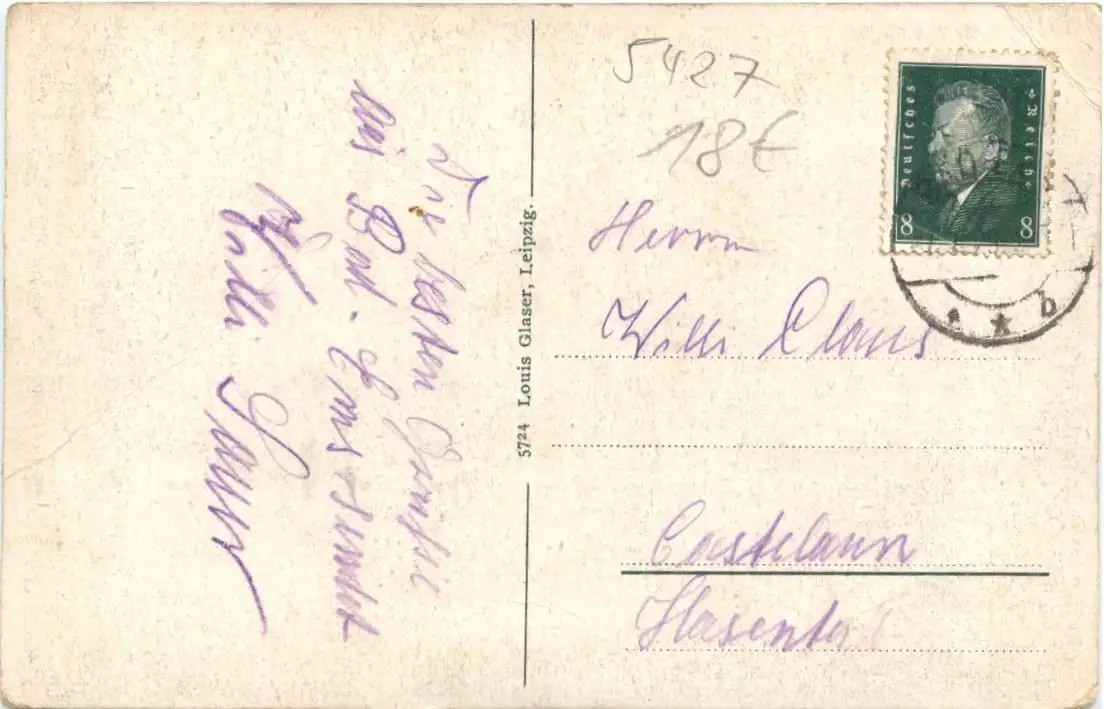 Die besten Grüsse
aus Bad. Ems sendet
Willi
5724 Louis Glaser, Leipzig.
5427
18€
Deutsches Reich
8 8
b
Herrn
Willi Claus
Castelaun